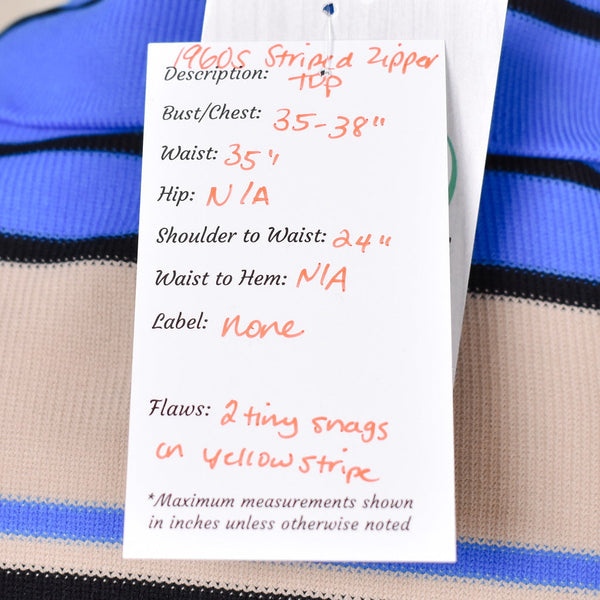 1960s Striped Zipper
Description: Top
Bust/Chest: 35-38"
Waist: 35"
Hip: N/A
Shoulder to Waist: 24"
Waist to Hem: N/A
Label: none
Flaws: 2 tiny snags
on yellow stripe
*Maximum measurements shown
in inches unless otherwise noted